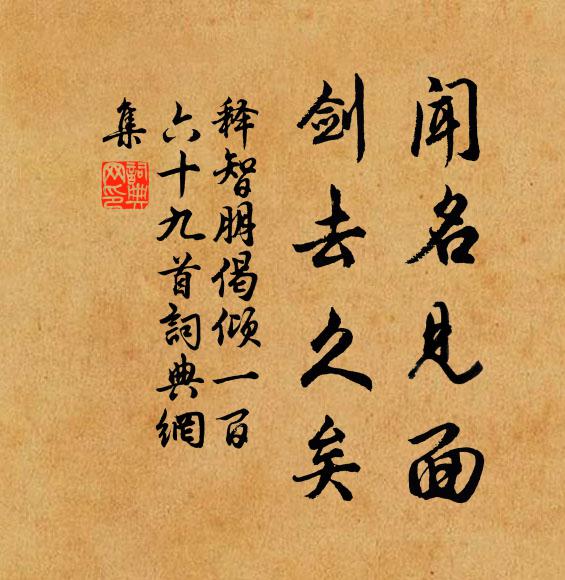 闻名见面
剑去久矣
释智朋偈倾一百
六十九首詞典網
集
詞典网印